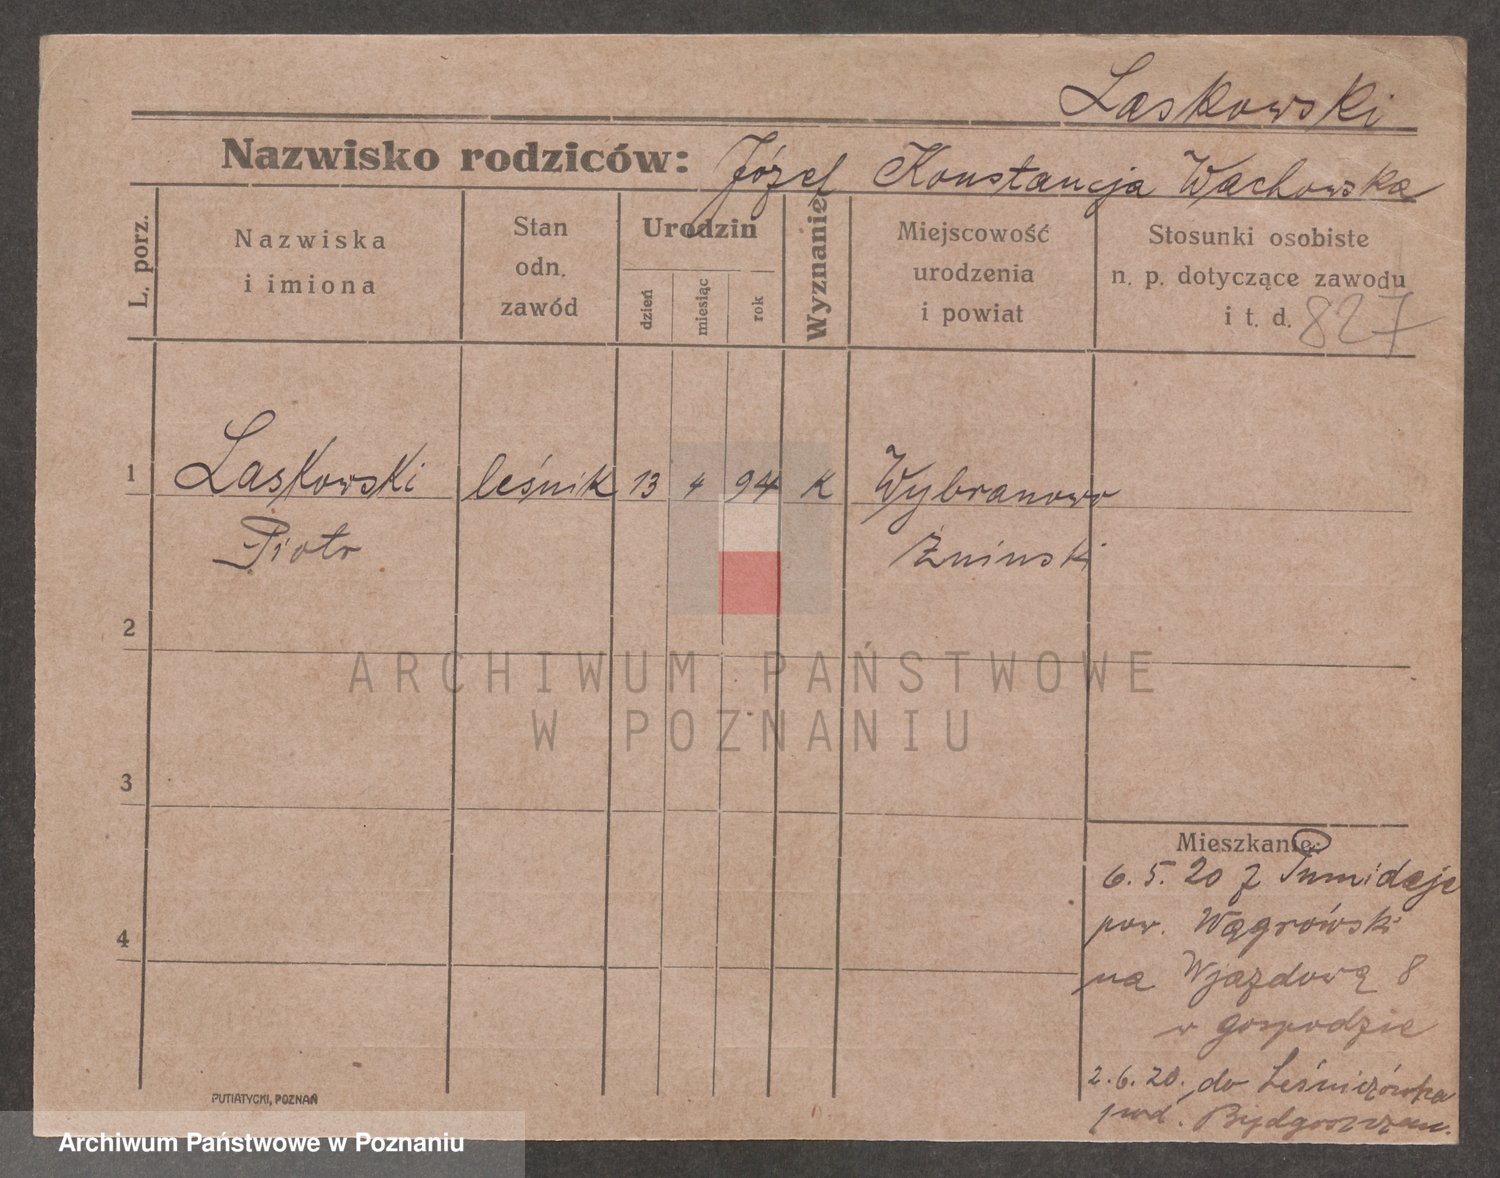 Laskowski
Nazwisko rodziców: Józef Konstancja Wachowska
L. porz.
Nazwiska
i imiona
Stan
odn.
zawód
Urodzin
dzień
miesiąc
rok
Wyznanie
Miejscowość
urodzenia
i powiat
Stosunki osobiste
n. p. dotyczące zawodu
i t. d. 827
1 Laskowski leśnik 13 4 94 K Wybranowo
Piotr Żninski
2
3
4
Mieszkanie:
6. 5. 20 z
pow. Wągrówski
na Wjazdową 8
w gospodzie
2. 6. 20. do Leśniczówka
pod. Bydgoszczam.
PUTIATYCKI, POZNAŃ
ARCHIWUM PAŃSTWOWE
W POZNANIU
Archiwum Państwowe w Poznaniu